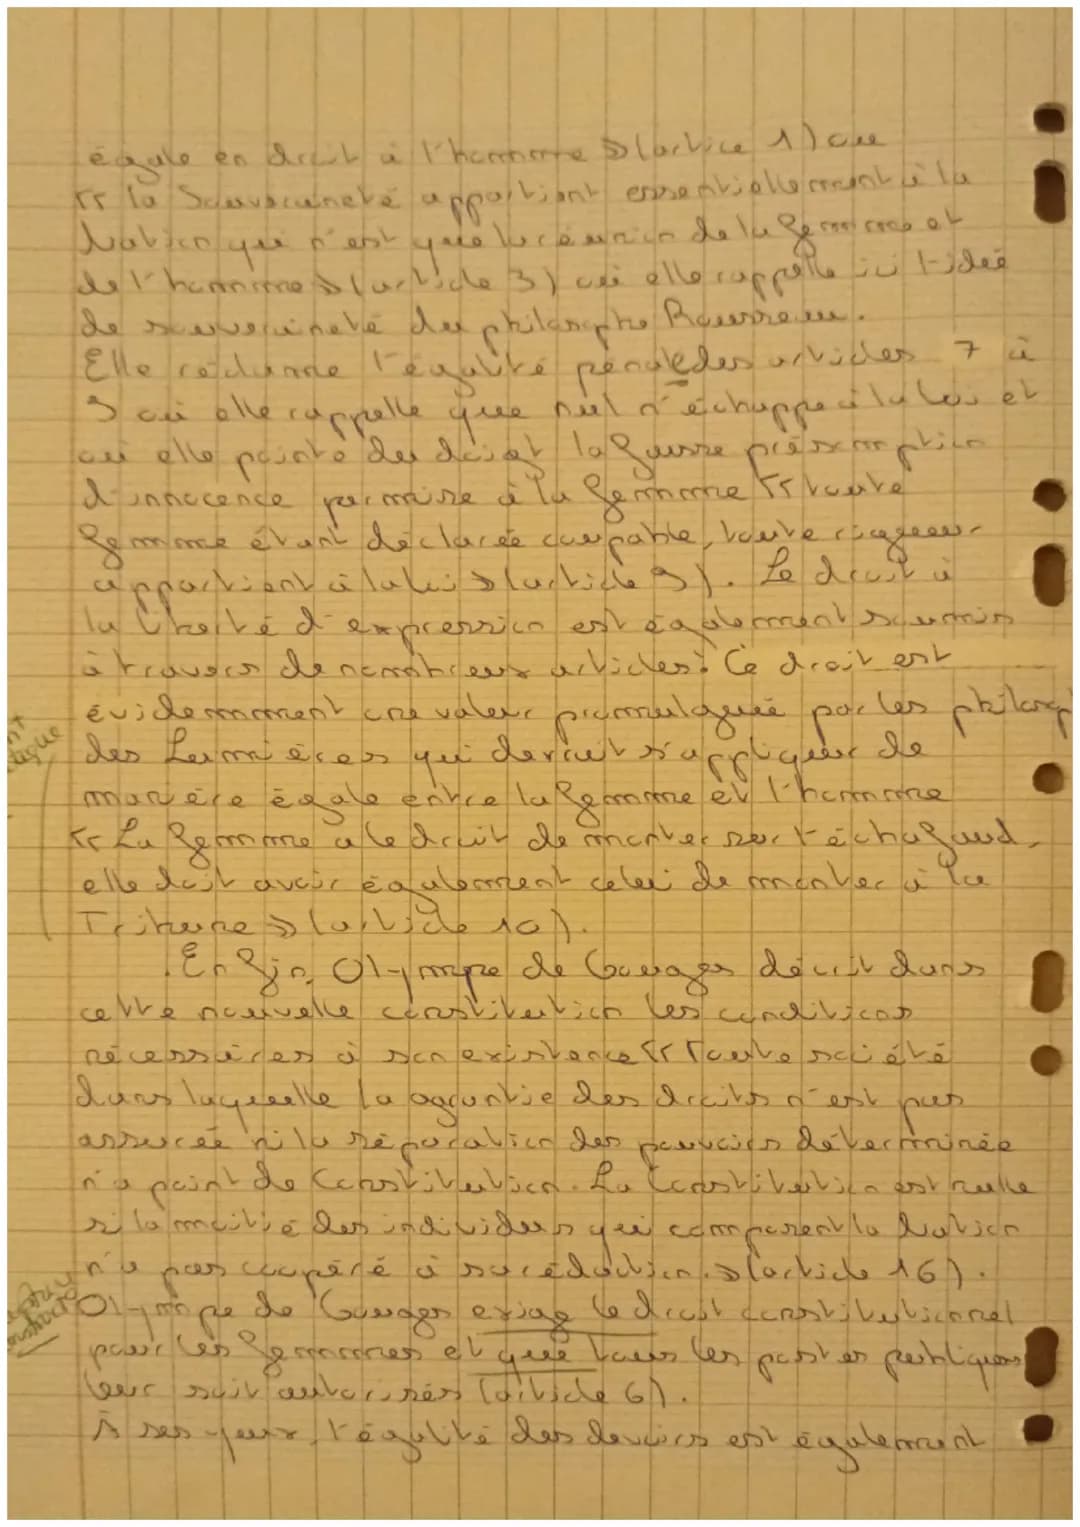 égale en droit à l'homme » (artice 1) ou
« la Souveraineté appartient essentiellement à la
Nation qui n'est que la réunion de la femme et
de l'homme » (article 3) où elle rappelle ici l'idée
de souveraineté du philosophe Rousseau.
Elle réclame l'égalité pénale des articles 7 à
9 où elle rappelle que nul n'échappe à la loi et
où elle pointe du doigt la fausse présomption
d'innocence permise à la femme « toute
femme étant déclarée coupable, toute rigueur
appartient à la loi » (article 9). Le droit à
la liberté d'expression est également soumis
à travers de nombreux articles. Ce droit est
évidemment une valeur promulguée par les philosop
des Lumières qui devrait s'appliquer de
manière égale entre la femme et l'homme
« La femme a le droit de monter sur l'échafaud,
elle doit avoir également celui de monter à la
Tribune » (article 10).
Enfin, Olympe de Gouges décrit dans
cette nouvelle constitution les conditions
nécessaires à son existence « Toute société
dans laquelle la garantie des droits n'est pas
assurée ni la séparation des pouvoirs déterminée
n'a point de Constitution. La Constitution est nulle
si la moitié des individus qui composent la Nation
n'a pas coopéré à sa rédaction. » (article 16).
Olympe de Gouges exige le droit constitutionnel
pour les femmes et que tous les postes publiques
leur soit autorisés (article 6).
À ses yeux, l'égalité des devoirs est également